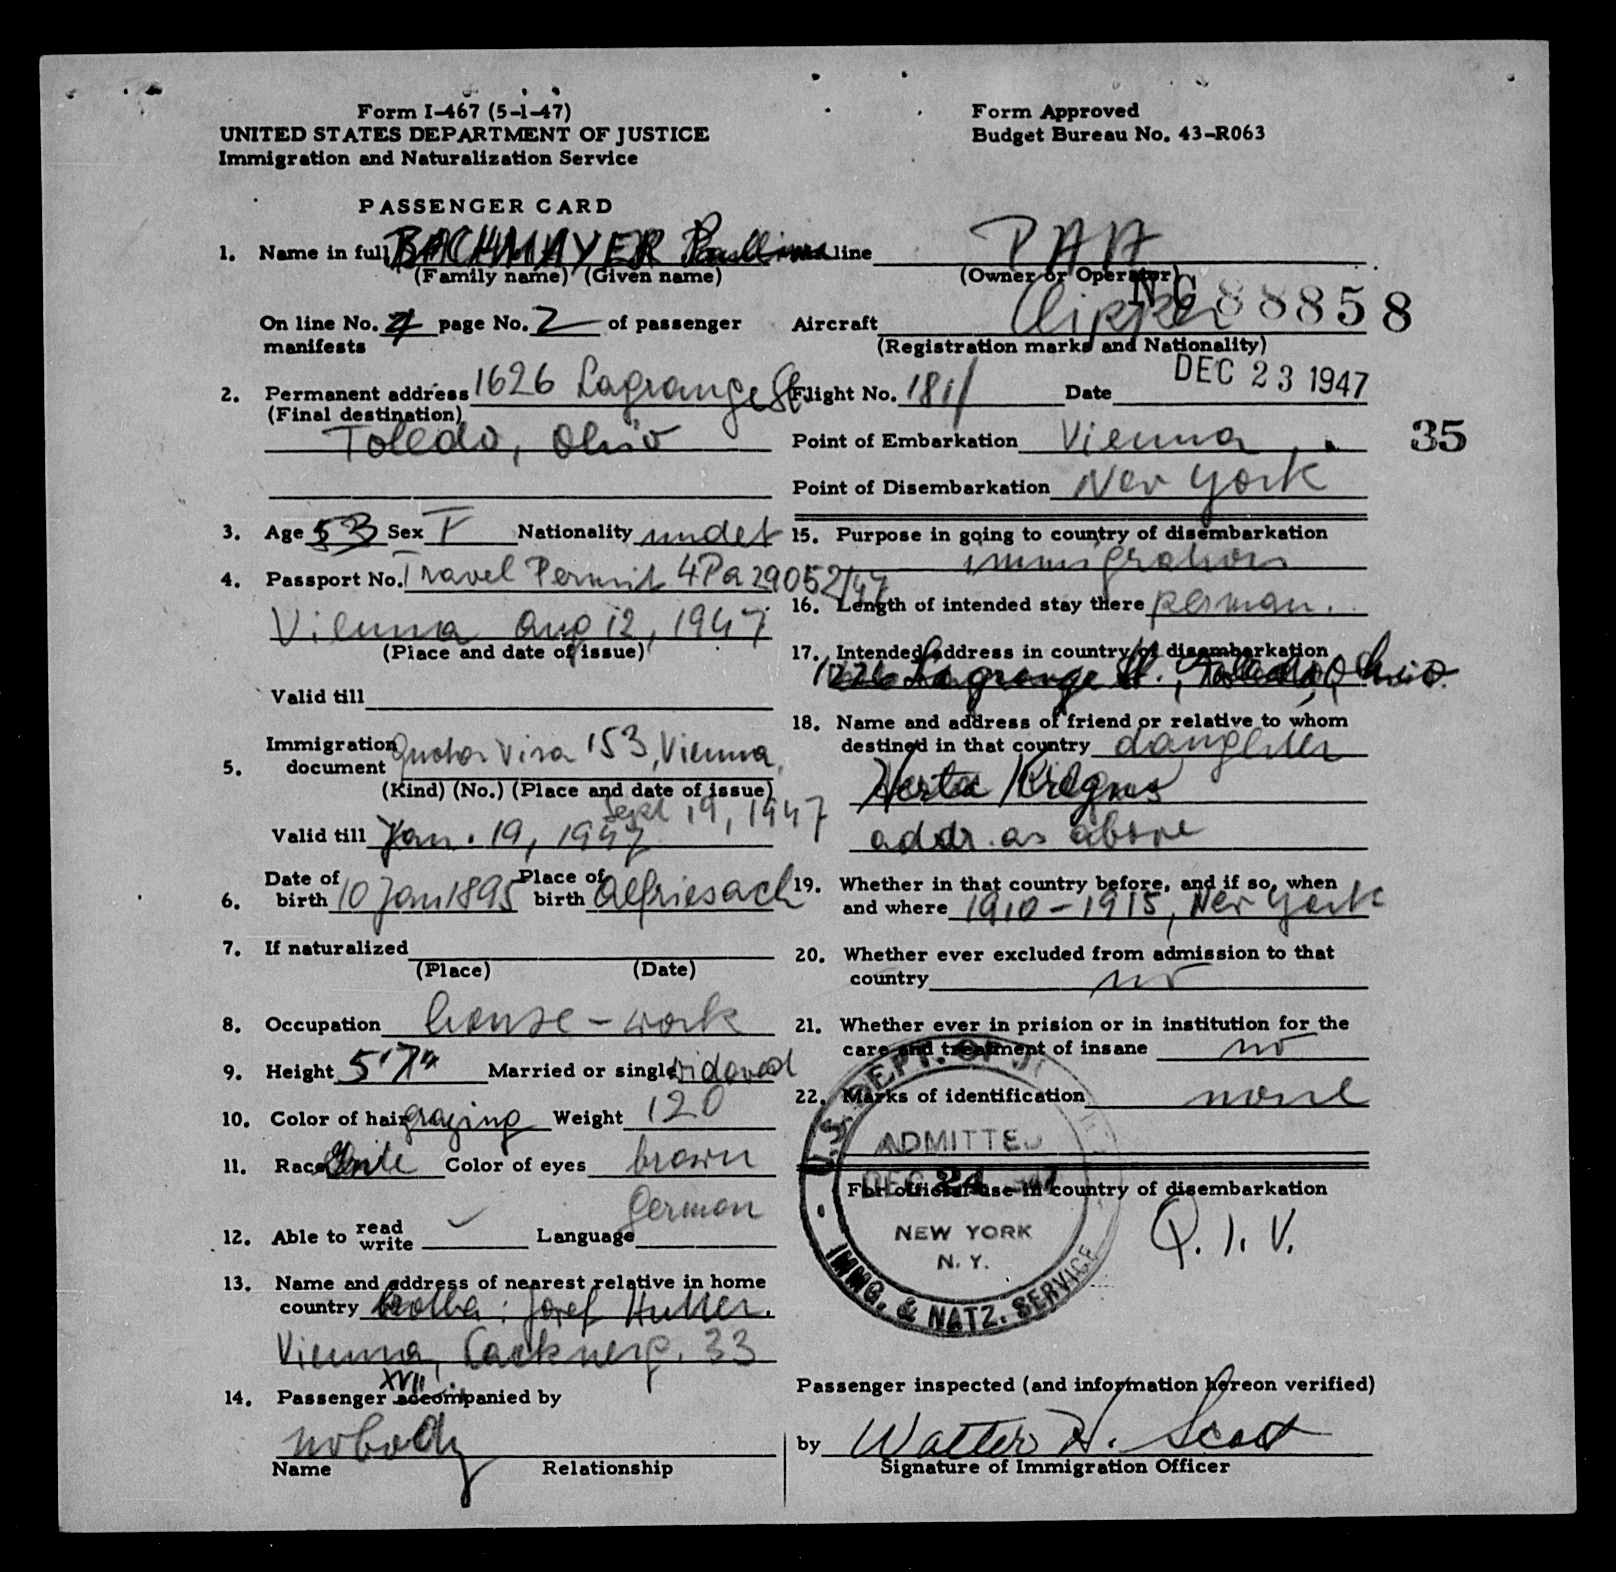 Form I-467 (5-1-47)
UNITED STATES DEPARTMENT OF JUSTICE
Immigration and Naturalization Service
Form Approved
Budget Bureau No. 43-R063
PASSENGER CARD
1. Name in full BACHMAYER Paulina
(Family name) (Given name)
line PAA
(Owner or Operator)
On line No. 4 page No. 2 of passenger
manifests
Aircraft Clipper NC 88858
(Registration marks and Nationality)
2. Permanent address 1626 Lagrange St.
(Final destination)
Toledo, Ohio
Flight No. 181/ Date DEC 23 1947
Point of Embarkation Vienna
35
Point of Disembarkation New York
3. Age 53 Sex F Nationality undet
4. Passport No. Travel Permit 4Pa 29052/47
Vienna Aug 12, 1947
(Place and date of issue)
Valid till
5. Immigration document Quota Visa 153, Vienna,
(Kind) (No.) (Place and date of issue)
Sept 19, 1947
Valid till Jan. 19, 1947
6. Date of birth 10 Jan 1895 Place of birth Alfriesach
7. If naturalized
(Place) (Date)
8. Occupation house-work
9. Height 5'7" Married or single widowed
10. Color of hair graying Weight 120
11. Race White Color of eyes brown
12. Able to read write ✓ Language German
13. Name and address of nearest relative in home
country brother: Josef Hutter.
Vienna, 33
XVII
14. Passenger accompanied by
nobody
Name Relationship
15. Purpose in going to country of disembarkation
immigration
16. Length of intended stay there perman.
17. Intended address in country of disembarkation
Lagrange St., Toledo, Ohio
18. Name and address of friend or relative to whom
destined in that country daughter
Herta
addr. as above
19. Whether in that country before, and if so, when
and where 1910-1915, New York
20. Whether ever excluded from admission to that
country no
21. Whether ever in prision or in institution for the
care and treatment of insane no
22. Marks of identification none
For official use in country of disembarkation
Q. I. V.
U.S. DEPT. OF J.
ADMITTED
DEC 24 1947
NEW YORK
N. Y.
IMMG. & NATZ. SERVICE
Passenger inspected (and information hereon verified)
by Walter H. Scott
Signature of Immigration Officer